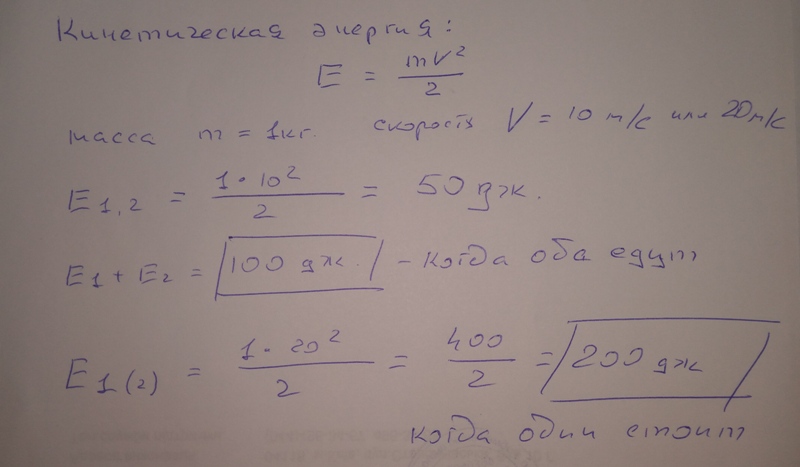 Кинетическая энергия:
E = mV²/2
масса m = 1кг. скорость V = 10 м/с или 20м/с
E1,2 = 1·10²/2 = 50 дж.
E1 + E2 = 100 дж. - когда оба едут
E1(2) = 1·20²/2 = 400/2 = 200 дж
когда один стоит